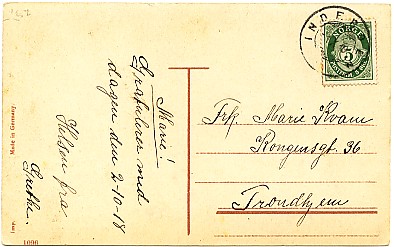 Marie!
Gratulerer med
dagen den 2-10-18
Hilsen fra
Grethe.
Frk Marie Kvam
Kongensgt. 36
Trondhjem
INDER
NORGE
5
Made in Germany